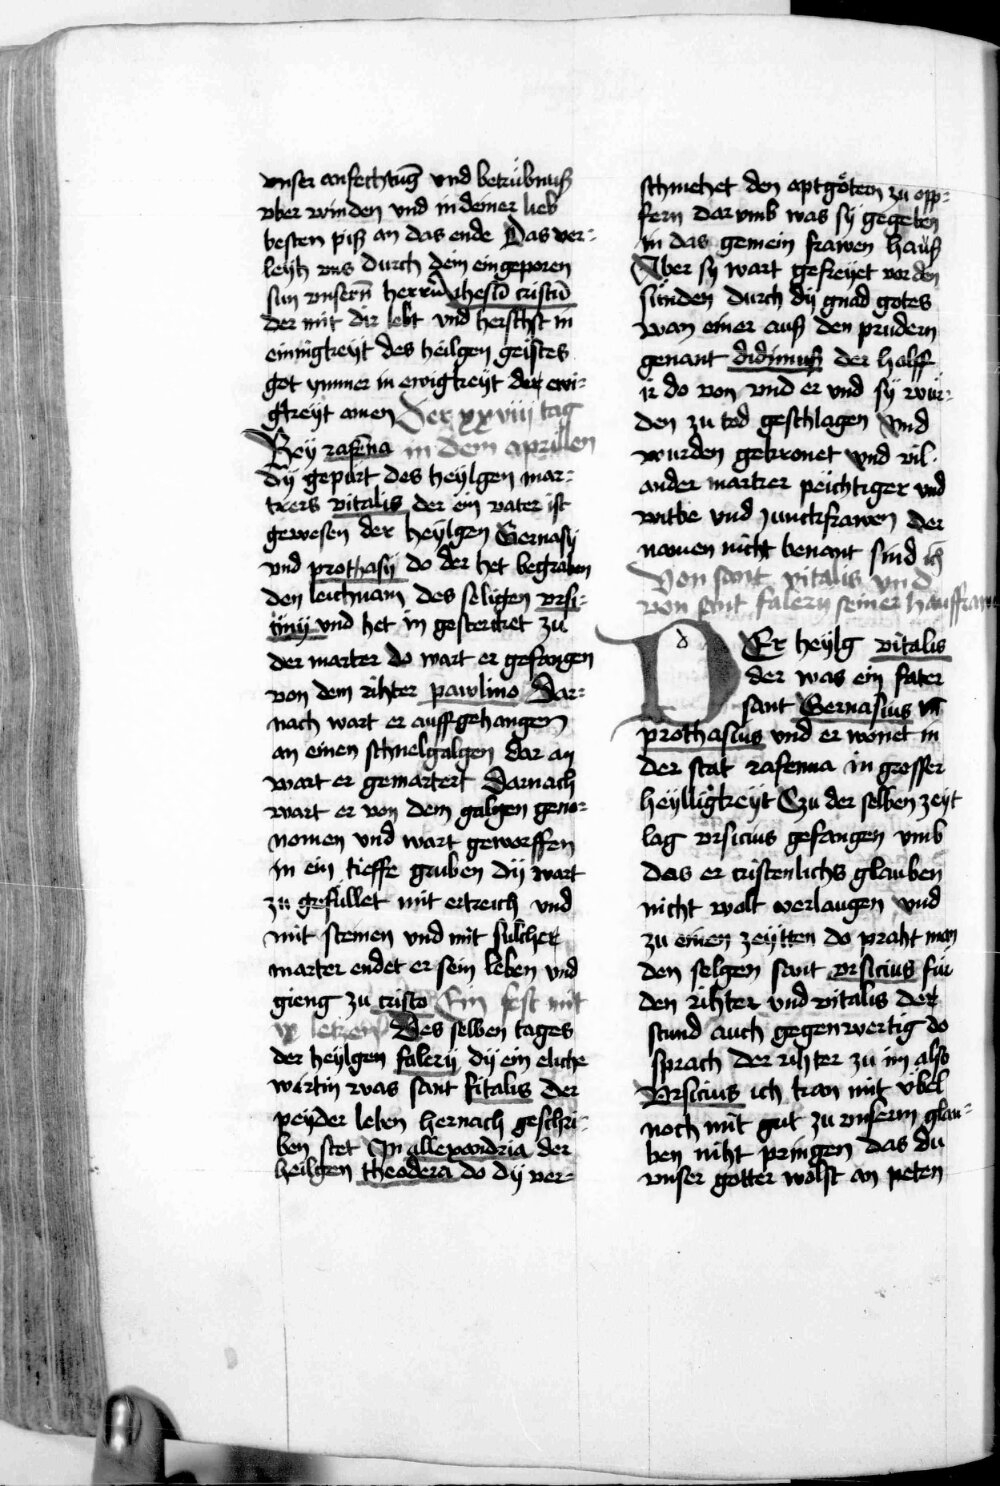 vnser anfechtūg vnd betrübnuß
vber winden vnd in deiner lieb
besten piß an das ende Das ver-
leyh vns durch dein eingeporen
sun vnsern̄ herrn̄ ihesū cristū
der mit dir lebt vnd herschst in
einnigkeyt des heilgen geistes
got ymmer in ewigkeyt der ewi-
gkeyt amen Der xxviij tag
Bey rafēna in dem aprillen
dÿ gepurt des heylgen mar-
trers vitalis der ein vater ist
gewesen der heylgen Gernasÿ
vnd prothasÿ do der het begraben
den leichnam des seligen vrsi-
cinij vnd het in gestercket zu
der marter do wart er gefangen
von dem rihter pawlino Dar-
nach wart er auffgehangen
an einen schnelgalgen dar an
wart er gemartert Darnach
wart er von dem galgen geno-
nomen vnd wart geworffen
in ein tieffe gruben dÿ wart
zu gefüllet mit ertreich vnd
mit steinen vnd mit sülcher
marter endet er sein leben vnd
gieng zu cristo Ein fest mit
letzen Des selben tages
der heylgen falerÿ dÿ ein eliche
wirtin was sant fitalis der
peyder leben hernach geschri-
ben stet In allexandria der
heilgen theodera do dÿ ver-
schmehet den aptgötern zu opp-
fern dar vmb was sÿ gegeben
in das gemein frawen hauß
Aber sÿ wart gefreyet vor den
sünden durch dÿ gnad gotes
wan einer auß den prudern
genant didimuß der halff
ir do von vnd er vnd sÿ wur-
den zu tod geschlagen vnd
wurden gekronet vnd vil
ander martrer peichtiger vnd
witbe vnd junckfrawen der
namen nicht benant sind ich
Von sant vitalis vnd
von sant falerÿ seiner haußfraw
DEr heylg vitalis
der was ein fater
sant Gernasius vn̄
prothasius vnd er wonet in
der stat rafenna in grosser
heylligkeyt Czu der selben zeyt
lag vrsicius gefangen vmb
das er cristenlichs glauben
nicht wolt verlaugen vnd
zu einen zeytten do praht man
den selgen sant vrsicius für
den rihter vnd vitalis der
stund auch gegenwertig do
sprach der rihter zu im also
Vrsicius ich kan mit vbel
noch mit gut zu vnserm glau-
ben niht pringen das du
vnser gotter wolst an peten